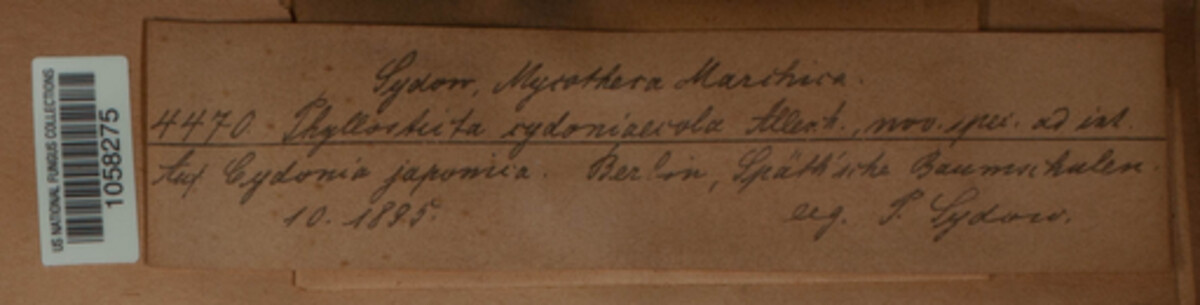 US NATIONAL FUNGUS COLLECTIONS
1058275
Sydow, Mycotheca Marchica.
4470. Phyllosticta cydoniaecola Allesch., nov. spec. ad int.
Auf Cydonia japonica. Berlin, Späth'sche Baumschulen.
10. 1895. leg. P. Sydow.